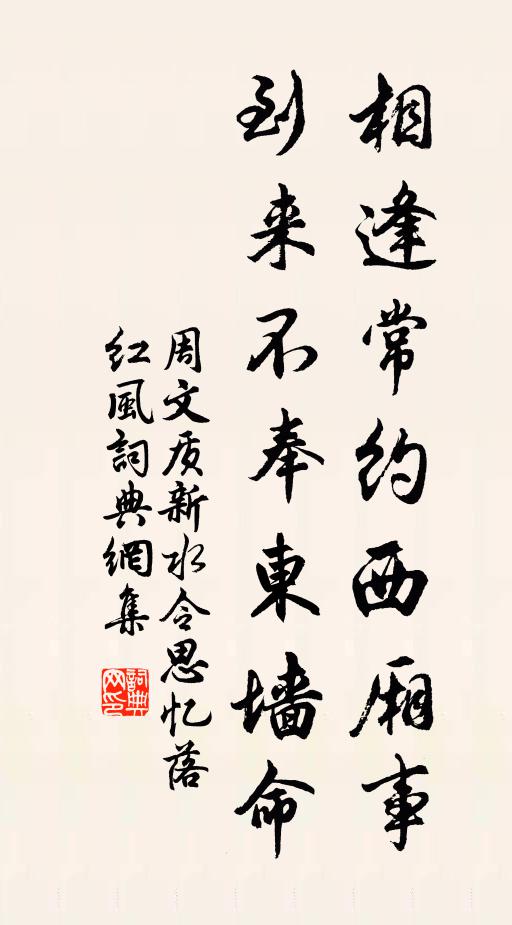 相逢常约西厢事
到来不奉東墙命
周文质新水令思忆落
红風詞典網集
詞典网印